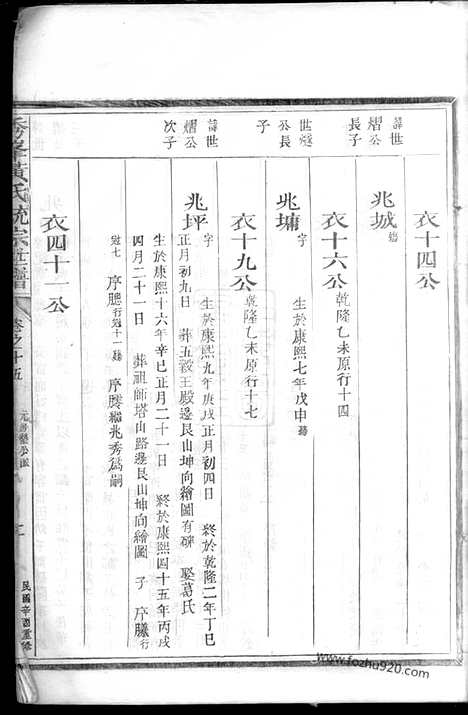 衣十四公
諱世熠公長子
兆城 殤
衣十六公 乾隆乙未原行十四
世熎公長子
兆墉 字 生於康熙七年戊申 殤
衣十九公 乾隆乙未原行十七
諱世熠公次子
兆坪 字 生於康熙九年庚戌正月初四日 終於乾隆二年丁巳
正月初九日 葬五穀王殿邊艮山坤向繪圖有碑 娶葛氏
生於康熙十六年辛巳正月二十一日 終於康熙四十五年丙戌
四月二十一日 葬祖師塔山路邊艮山坤向繪圖 子 序騰行
冠七 序
衣四十一公
黃氏統宗世譜
卷之十五
民國辛酉重修
www.fozhu920.com